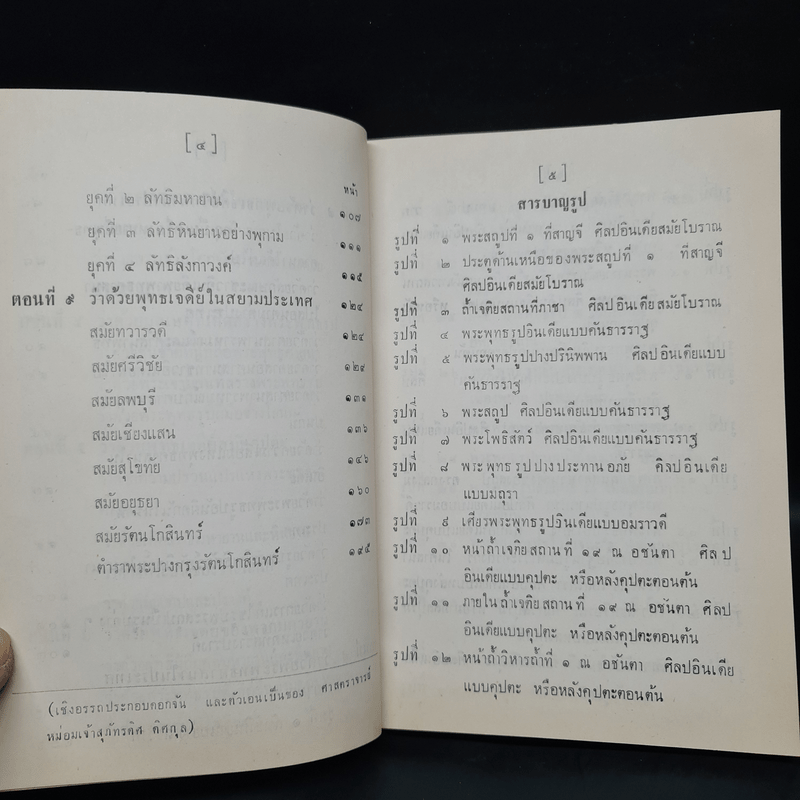 [ ๔ ]
หน้า
ยุคที่ ๒ ลัทธิมหายาน ๑๐๗
ยุคที่ ๓ ลัทธิหินยานอย่างพุกาม ๑๑๑
ยุคที่ ๔ ลัทธิลังกาวงค์ ๑๑๕
ตอนที่ ๙ ว่าด้วยพุทธเจดีย์ในสยามประเทศ ๑๒๔
สมัยทวารวดี ๑๒๔
สมัยศรีวิชัย ๑๒๙
สมัยลพบุรี ๑๓๑
สมัยเชียงแสน ๑๓๖
สมัยสุโขทัย ๑๔๖
สมัยอยุธยา ๑๖๐
สมัยรัตนโกสินทร์ ๑๗๓
ตำราพระปางกรุงรัตนโกสินทร์ ๑๙๕
(เชิงอรรถประกอบดอกจัน และตัวเอนเป็นของ ศาสตราจารย์
หม่อมเจ้าสุภัทรดิศ ดิศกุล)
[ ๕ ]
สารบาญรูป
รูปที่ ๑ พระสถูปที่ ๑ ที่สาญจี ศิลปอินเดียสมัยโบราณ
รูปที่ ๒ ประตูด้านเหนือของพระสถูปที่ ๑ ที่สาญจี
ศิลปอินเดียสมัยโบราณ
รูปที่ ๓ ถ้ำเจติยสถานที่ภาชา ศิลปอินเดียสมัยโบราณ
รูปที่ ๔ พระพุทธรูปอินเดียแบบคันธารราฐ
รูปที่ ๕ พระพุทธรูปปางปรินิพพาน ศิลปอินเดียแบบ
คันธารราฐ
รูปที่ ๖ พระสถูป ศิลปอินเดียแบบคันธารราฐ
รูปที่ ๗ พระโพธิสัตว์ ศิลปอินเดียแบบคันธารราฐ
รูปที่ ๘ พระพุทธรูปปางประทานอภัย ศิลปอินเดีย
แบบมถุรา
รูปที่ ๙ เศียรพระพุทธรูปอินเดียแบบอมราวดี
รูปที่ ๑๐ หน้าถ้ำเจติยสถานที่ ๑๙ ณ อชันตา ศิลป
อินเดียแบบคุปตะ หรือหลังคุปตะตอนต้น
รูปที่ ๑๑ ภายในถ้ำเจติยสถานที่ ๑๙ ณ อชันตา ศิลป
อินเดียแบบคุปตะ หรือหลังคุปตะตอนต้น
รูปที่ ๑๒ หน้าถ้ำวิหารถ้ำที่ ๑ ณ อชันตา ศิลปอินเดีย
แบบคุปตะ หรือหลังคุปตะตอนต้น